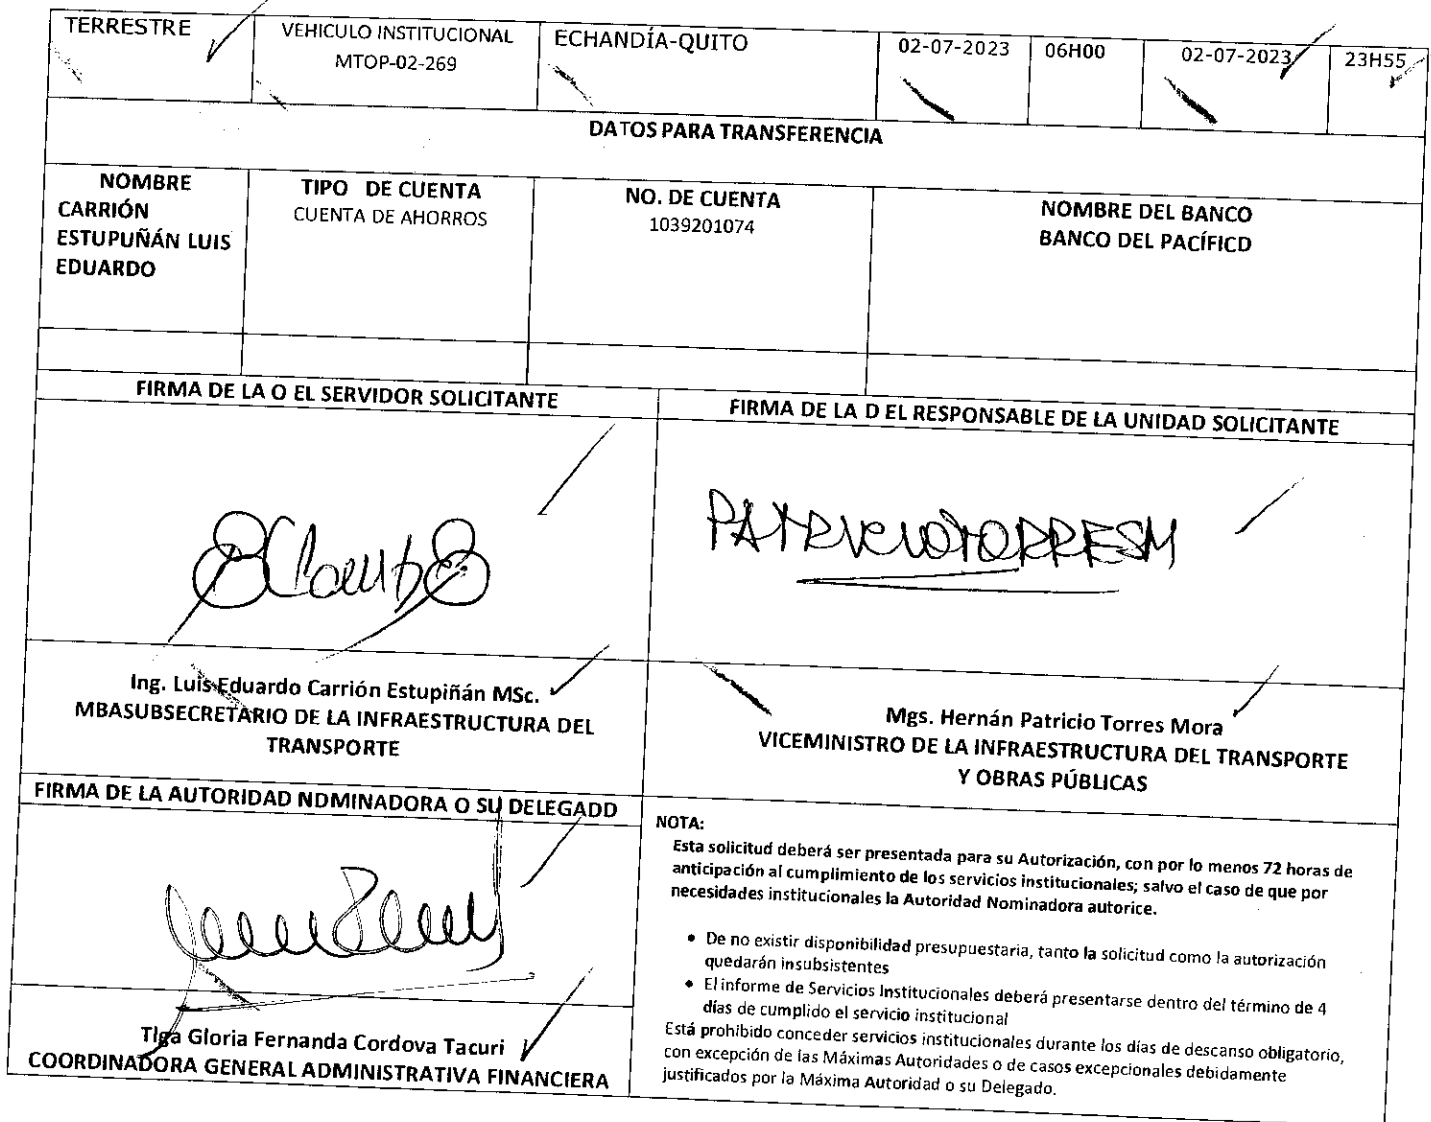 TERRESTRE
VEHICULO INSTITUCIONAL
MTOP-02-269
ECHANDÍA-QUITO
02-07-2023
06H00
02-07-2023
23H55
DATOS PARA TRANSFERENCIA
NOMBRE
CARRIÓN
ESTUPUÑÁN LUIS
EDUARDO
TIPO DE CUENTA
CUENTA DE AHORROS
NO. DE CUENTA
1039201074
NOMBRE DEL BANCO
BANCO DEL PACÍFICD
FIRMA DE LA O EL SERVIDOR SOLICITANTE
FIRMA DE LA D EL RESPONSABLE DE LA UNIDAD SOLICITANTE
PATRICIOTORRESM
Ing. Luis Eduardo Carrión Estupiñán MSc.
MBASUBSECRETARIO DE LA INFRAESTRUCTURA DEL
TRANSPORTE
Mgs. Hernán Patricio Torres Mora
VICEMINISTRO DE LA INFRAESTRUCTURA DEL TRANSPORTE
Y OBRAS PÚBLICAS
FIRMA DE LA AUTORIDAD NDMINADORA O SU DELEGADD
Tlga Gloria Fernanda Cordova Tacuri
COORDINADORA GENERAL ADMINISTRATIVA FINANCIERA
NOTA:
Esta solicitud deberá ser presentada para su Autorización, con por lo menos 72 horas de
anticipación al cumplimiento de los servicios institucionales; salvo el caso de que por
necesidades institucionales la Autoridad Nominadora autorice.
• De no existir disponibilidad presupuestaria, tanto la solicitud como la autorización
quedarán insubsistentes
• El informe de Servicios Institucionales deberá presentarse dentro del término de 4
días de cumplido el servicio institucional
Está prohibido conceder servicios institucionales durante los días de descanso obligatorio,
con excepción de las Máximas Autoridades o de casos excepcionales debidamente
justificados por la Máxima Autoridad o su Delegado.